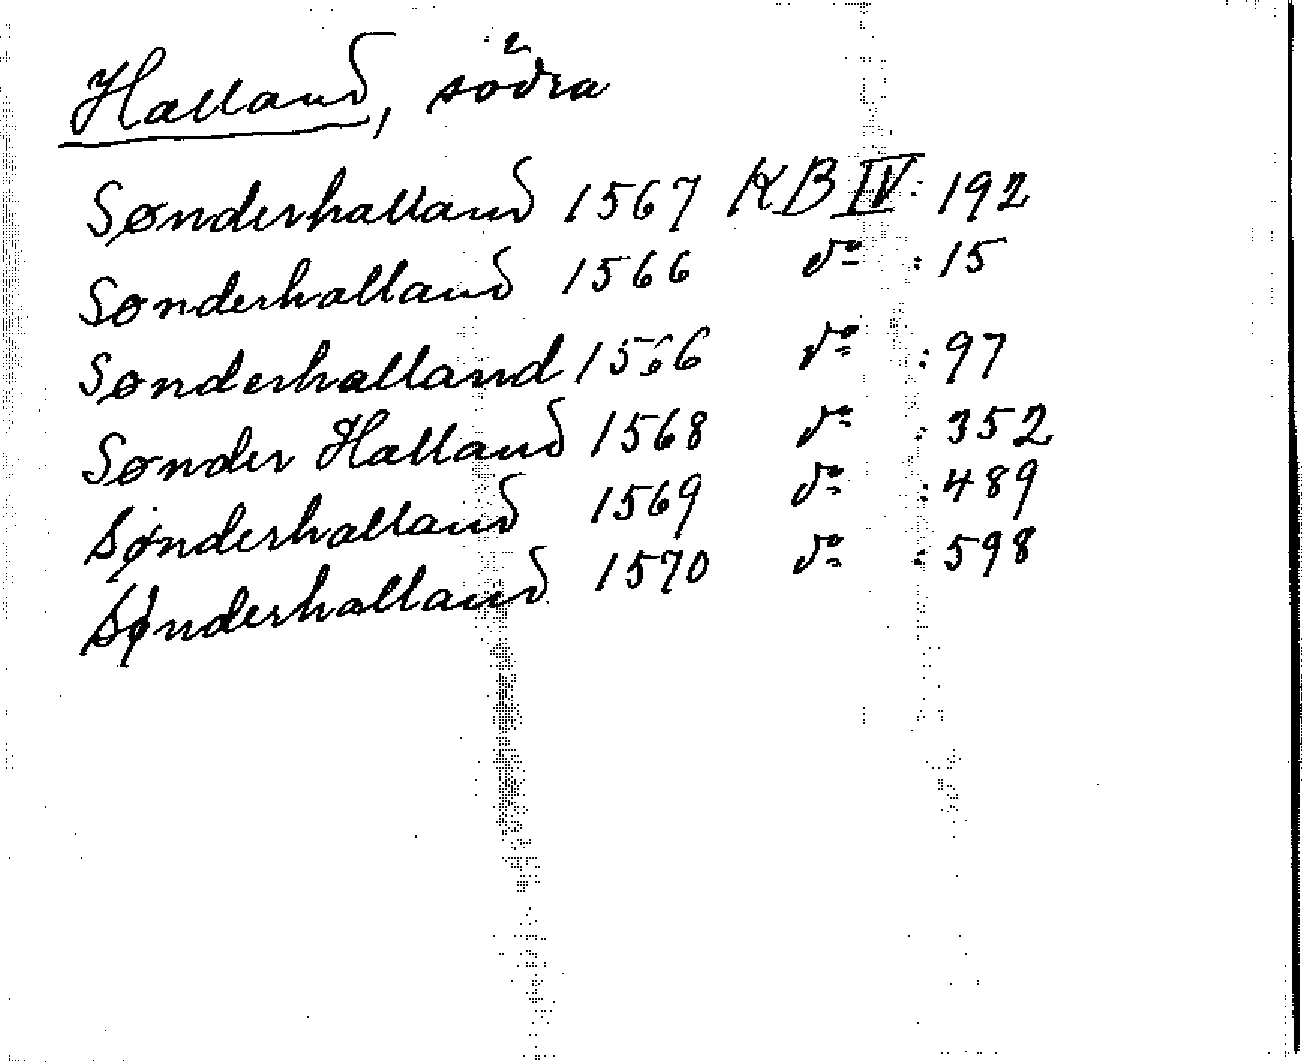 Halland, södra
Sønderhalland 1567 KB IV: 192
Sønderhalland 1566 do : 15
Sønderhalland 1566 do : 97
Sønder Halland 1568 do : 352
Sønderhalland 1569 do : 489
Sønderhalland 1570 do : 598